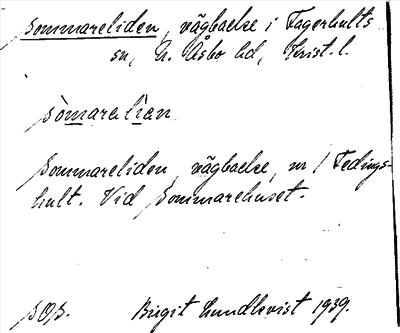 Sommareliden, vägbacke i Fagerhults
sn, N. Åsbo hd, Krist. l.
sòmareli̱an
Sommareliden, vägbacke, nr 1 Fedings-
hult. Vid Sommarehuset.
SOS. Birgit Lundkvist 1939.